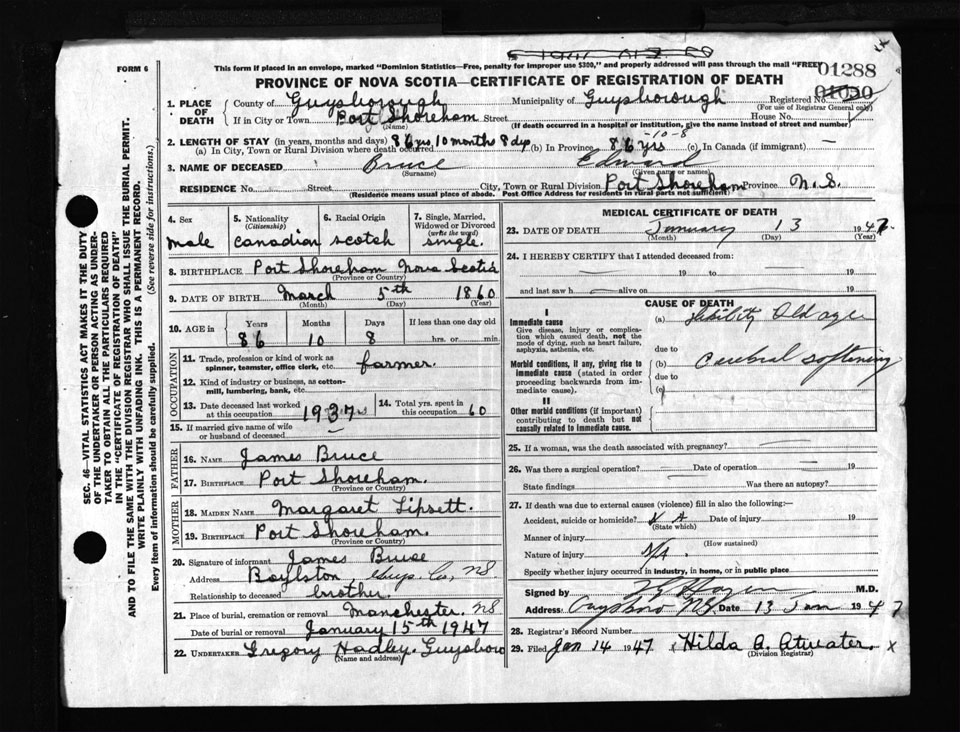 FORM 6
This form if placed in an envelope, marked "Dominion Statistics—Free, penalty for improper use $300," and properly addressed will pass through the mail "FREE"
01288
PROVINCE OF NOVA SCOTIA—CERTIFICATE OF REGISTRATION OF DEATH
1. PLACE OF DEATH
County of Guysborough Municipality of Guysborough Registered No.
(For use of Registrar General only)
If in City or Town Port Shoreham Street House No.
(Name) (If death occurred in a hospital or institution, give the name instead of street and number)
2. LENGTH OF STAY (in years, months and days)
(a) In City, Town or Rural Division where death occurred 86 yrs, 10 months 8 dys (b) In Province 86 yrs -10-8 (c) In Canada (if immigrant) —
3. NAME OF DECEASED Bruce Edward
(Surname) (Given name or names)
RESIDENCE No. Street City, Town or Rural Division Port Shoreham Province N.S.
(Residence means usual place of abode. Post Office Address for residents in rural parts not sufficient)
SEC. 46—VITAL STATISTICS ACT MAKES IT THE DUTY
OF THE UNDERTAKER OR PERSON ACTING AS UNDER-
TAKER TO OBTAIN ALL THE PARTICULARS REQUIRED
IN THE "CERTIFICATE OF REGISTRATION OF DEATH"
AND TO FILE THE SAME WITH THE DIVISION REGISTRAR WHO SHALL ISSUE THE BURIAL PERMIT.
WRITE PLAINLY WITH UNFADING INK. THIS IS A PERMANENT RECORD.
Every item of information should be carefully supplied. (See reverse side for instructions.)
4. Sex
male
5. Nationality
(Citizenship)
Canadian
6. Racial Origin
Scotch
7. Single, Married, Widowed or Divorced
(write the word)
single.
8. BIRTHPLACE Port Shoreham Nova Scotia
(Province or Country)
9. DATE OF BIRTH March 5th 1860
(Month) (Day) (Year)
10. AGE in Years Months Days If less than one day old
86 10 8 hrs. or min.
OCCUPATION
11. Trade, profession or kind of work as spinner, teamster, office clerk, etc. farmer.
12. Kind of industry or business, as cotton-mill, lumbering, bank, etc.
13. Date deceased last worked at this occupation 1937
14. Total yrs. spent in this occupation 60
15. If married give name of wife or husband of deceased
FATHER
16. NAME James Bruce
17. BIRTHPLACE Port Shoreham.
(Province or Country)
MOTHER
18. MAIDEN NAME Margaret Lipsett
19. BIRTHPLACE Port Shoreham.
(Province or Country)
20. Signature of informant James Bruce
Address Boylston Guys. Co, NS
Relationship to deceased brother.
21. Place of burial, cremation or removal Manchester. NS
Date of burial or removal January 15th 1947
22. UNDERTAKER Gregory Hadley. Guysboro
(Name and address)
MEDICAL CERTIFICATE OF DEATH
23. DATE OF DEATH January 13 1947
(Month) (Day) (Year)
24. I HEREBY CERTIFY that I attended deceased from:
19 to 19
and last saw h alive on 19
CAUSE OF DEATH
I
Immediate cause
Give disease, injury or complication which caused death, not the mode of dying, such as heart failure, asphyxia, asthenia, etc.
(a) Debility Old age
due to
Morbid conditions, if any, giving rise to immediate cause (stated in order proceeding backwards from immediate cause).
(b) Cerebral softening
due to
(c)
II
Other morbid conditions (if important) contributing to death but not causally related to immediate cause.
25. If a woman, was the death associated with pregnancy?
26. Was there a surgical operation? Date of operation 19
State findings Was there an autopsy?
27. If death was due to external causes (violence) fill in also the following:
Accident, suicide or homicide? N A Date of injury 19
(State which)
Manner of injury
(How sustained)
Nature of injury N/A.
Specify whether injury occurred in industry, in home, or in public place
Signed by M.D.
Address Guysboro N.S. Date 13 Jan 1947
28. Registrar's Record Number
29. Filed Jan 14 1947 x Hilda A. Atwater. x
(Division Registrar)